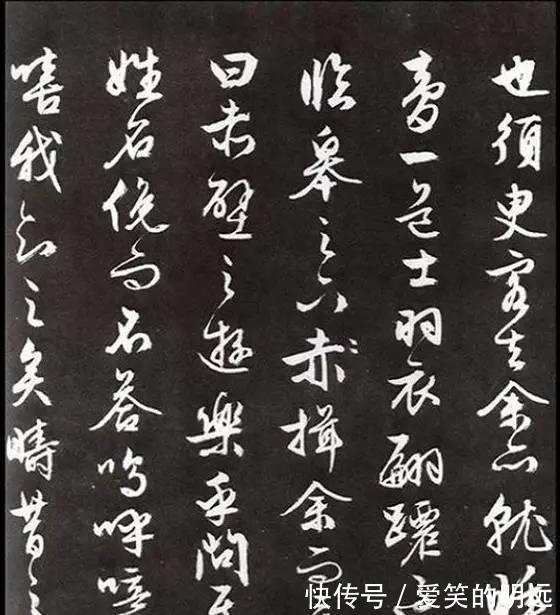 也須臾客去余亦就睡
夢一道士羽衣翩躚
臨皋之下赤揖余而言
曰赤壁之遊樂乎問其
姓名俛而不答嗚呼噫
嘻我知之矣疇昔之
快传号 / 爱笑的明远